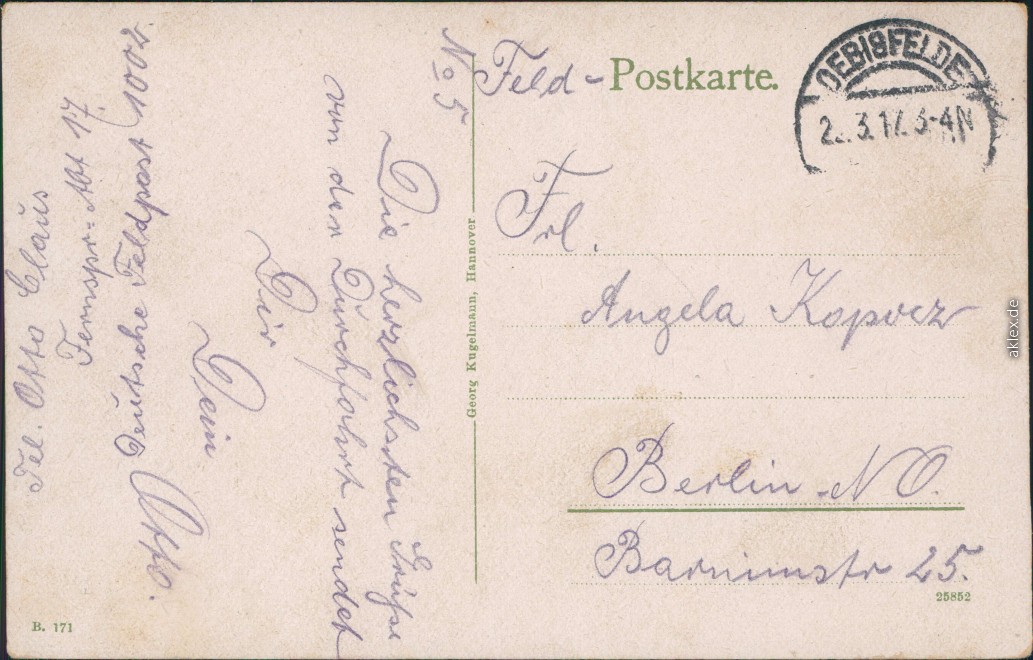 No 5
Feld - Postkarte.
OEBISFELDE
2. 3.17. 3-4N
Frl.
Angela Kopvez
Berlin - NO.
Barnimstr 25.
25852
Georg Kugelmann, Hannover
Die herzlichsten Grüße
von der Durchfahrt sendet
Dir
Dein
Otto.
Tel. Otto Claus
Fernspr-Abt 17
Deutsche Feldpost 1002
B. 171
aklex.de